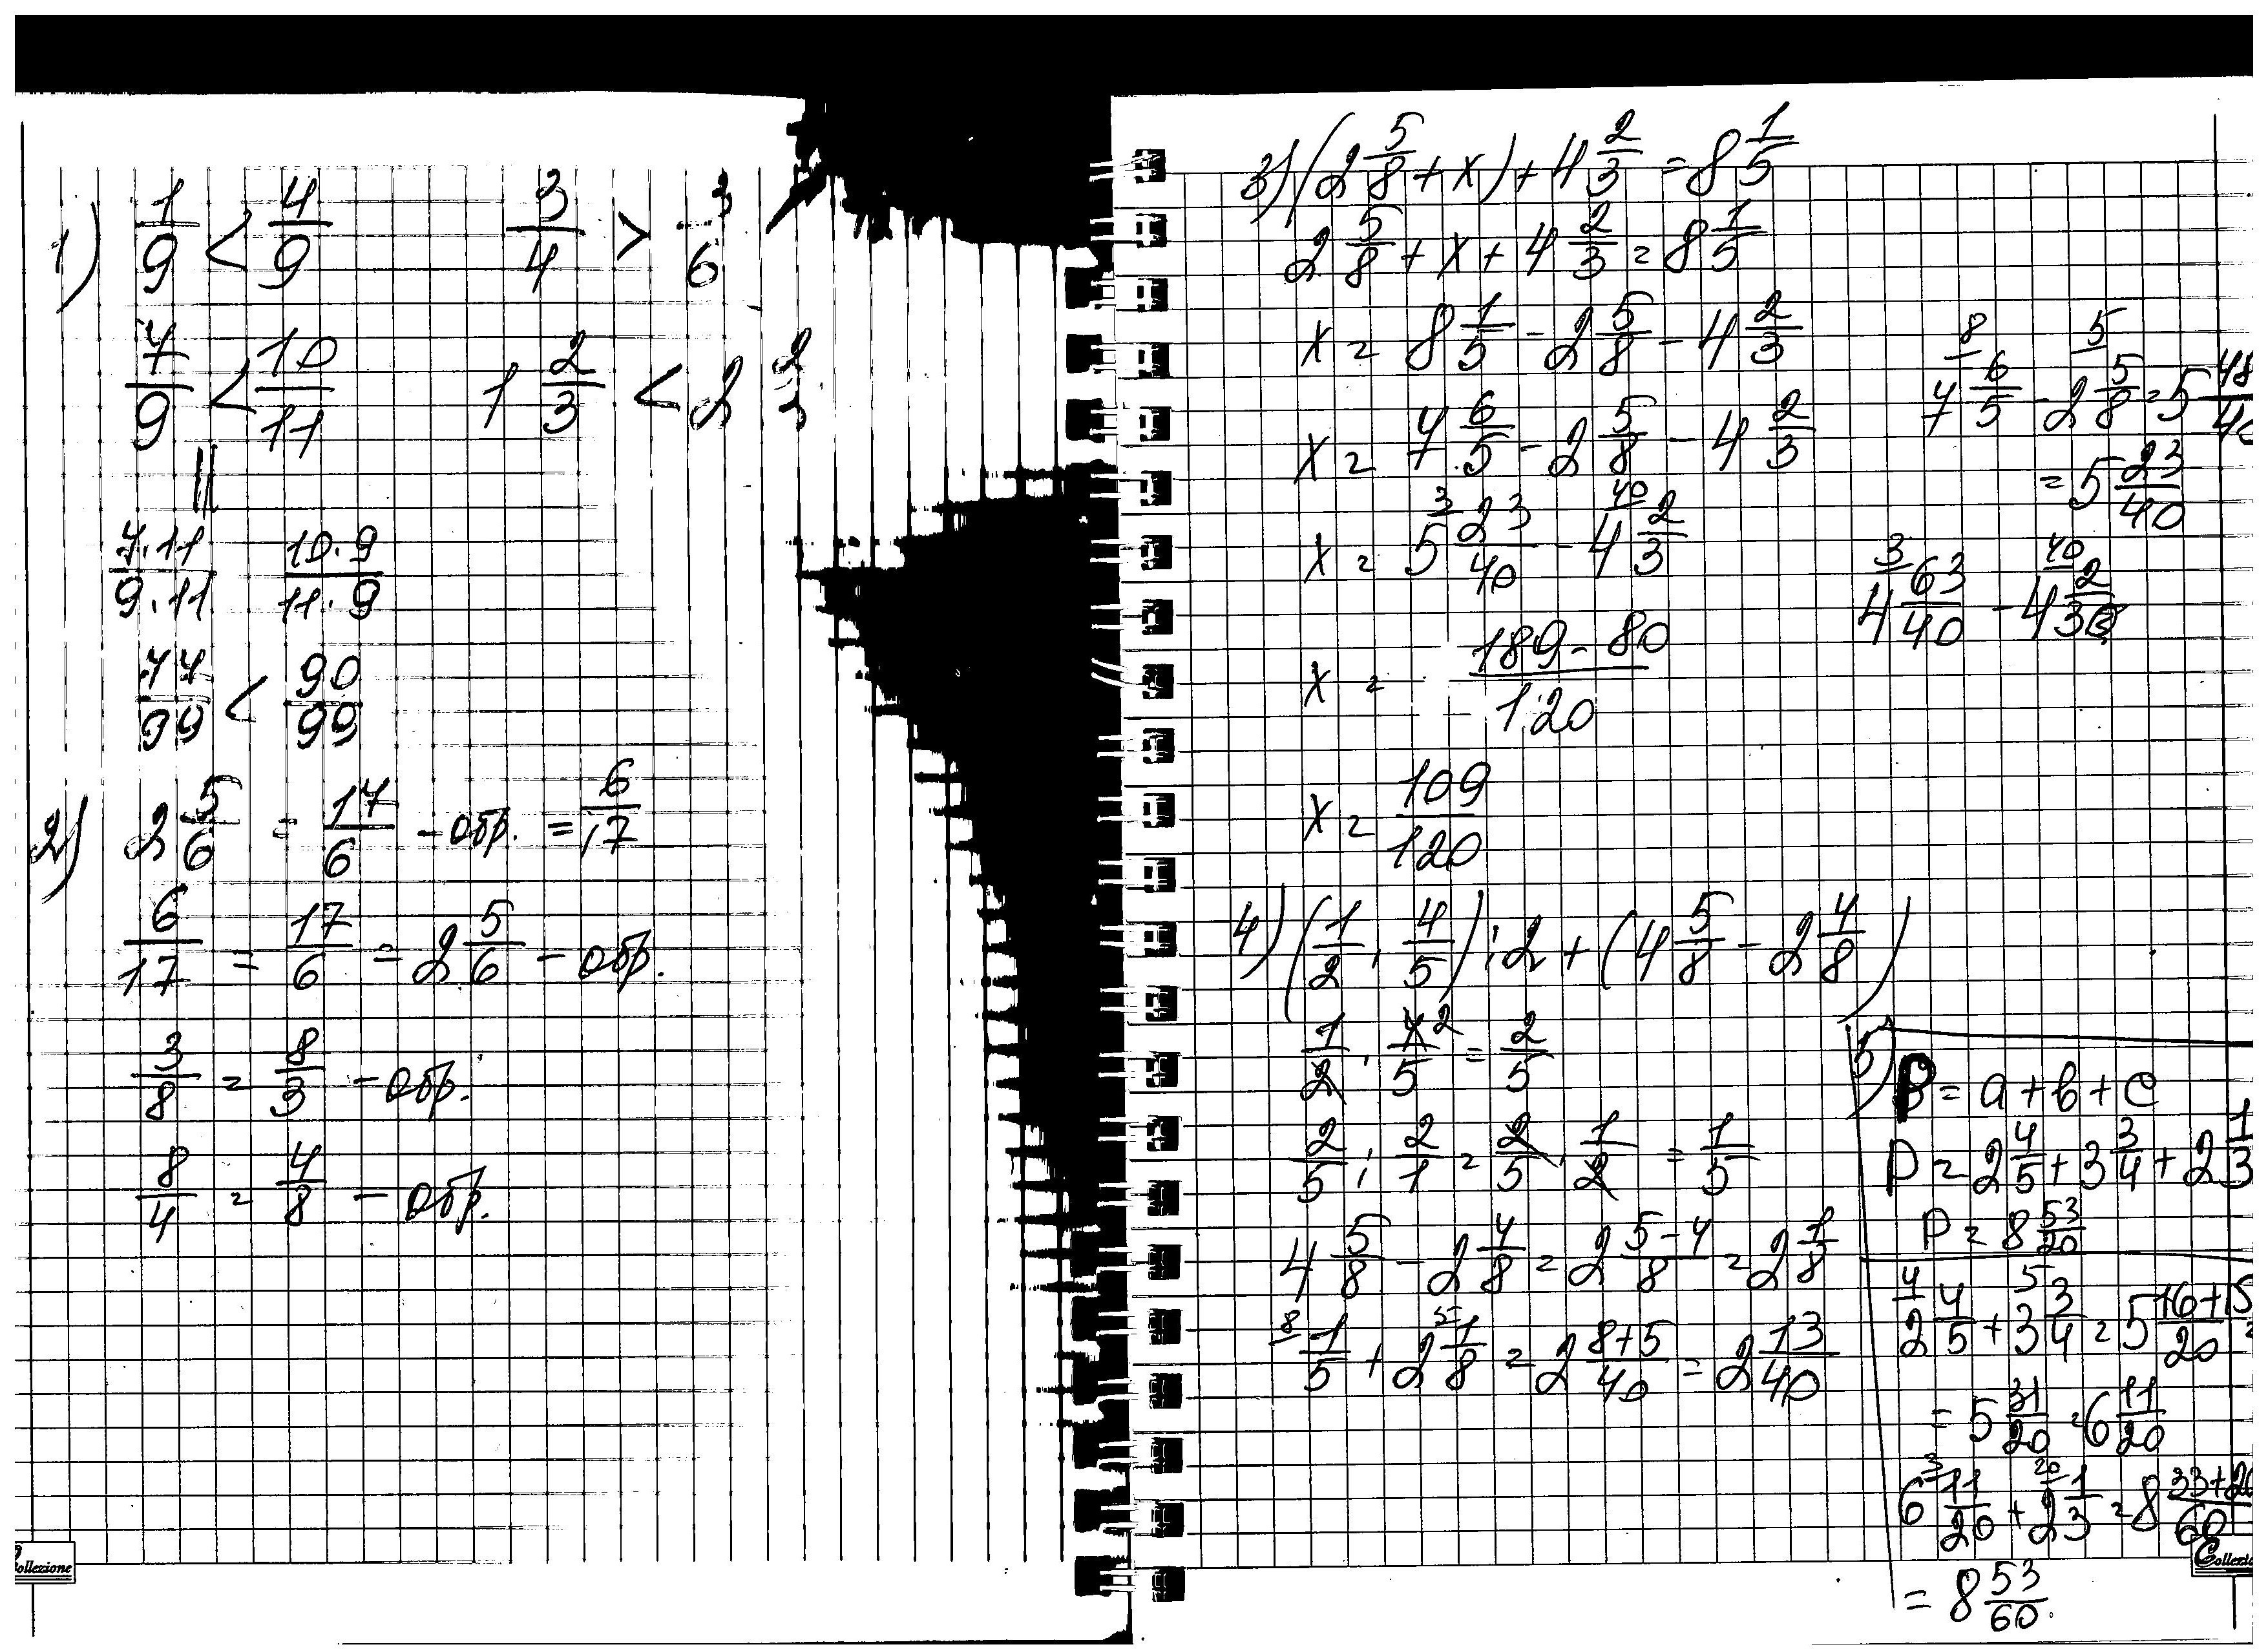 1) 1/9 < 4/9   3/4 > 3/6
7/9 < 10/11   1 2/3 < 2 2/3
||
7·11/9·11   10·9/11·9
77/99 < 90/99
2) 2 5/6 = 17/6 - обр. = 6/17
6/17 = 17/6 = 2 5/6 - обр.
3/8 = 8/3 - обр.
8/4 = 4/8 - обр.
Collezione
3) (2 5/8 + x) + 4 2/3 = 8 1/5
2 5/8 + x + 4 2/3 = 8 1/5
x = 8 1/5 - 2 5/8 - 4 2/3
x = 7 6/5 - 2 5/8 - 4 2/3
x = 5 23/40 - 4 2/3
x = 189-80/120
x = 109/120
7 6/5 - 2 5/8 = 5 48
= 5 23/40
4 63/40 - 4 2/3
4) (1/2 · 4/5) : 2 + (4 5/8 - 2 4/8)
1/2 · 4/5 = 2/5
2/5 : 2/1 = 2/5 · 1/2 = 1/5
4 5/8 - 2 4/8 = 2 5-4/8 = 2 1/8
1/5 + 2 1/8 = 2 8+5/40 = 2 13/40
5) P = a + b + c
P = 2 4/5 + 3 3/4 + 2 1/3
P = 8 53/20
2 4/5 + 3 3/4 = 5 16+15/20 =
= 5 31/20 = 6 11/20
6 11/20 + 2 1/3 = 8 33+20/60
= 8 53/60.
Collezio